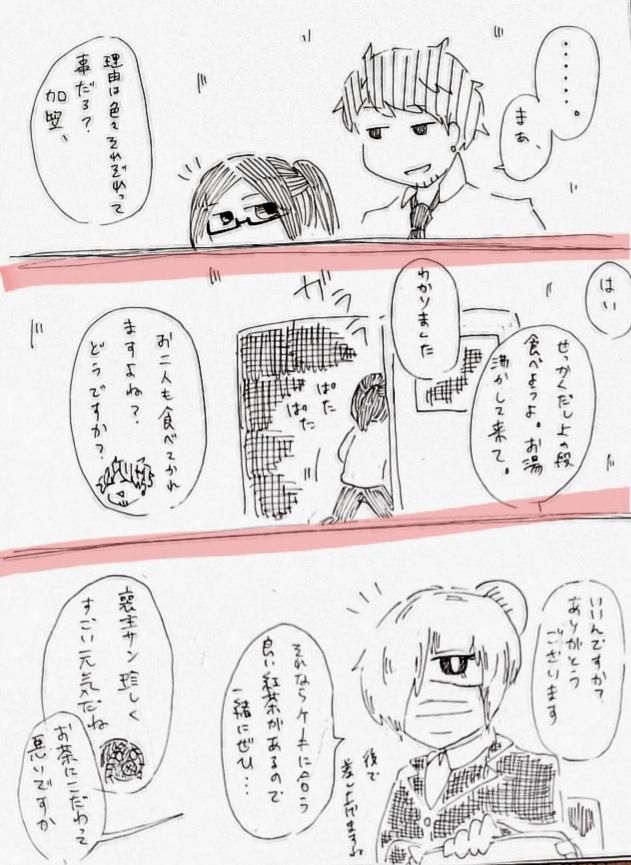 ・・・・・・。
まぁ、
理由は色々それぞれって
事だろ？
加笠、
はい
せっかくだし上の段
食べようよ。お湯
沸かして来て。
わかりました
ガラ
ぱた
ぱた
お二人も食べてかれ
ますよね？
どうですか？
いいんですか？
ありがとう
ございます
それならケーキに合う
良い紅茶があるので
一緒にぜひ…
後で
差し上げますね
裏主サン珍しく
すごい元気だね
お茶にこだわって
悪いですか